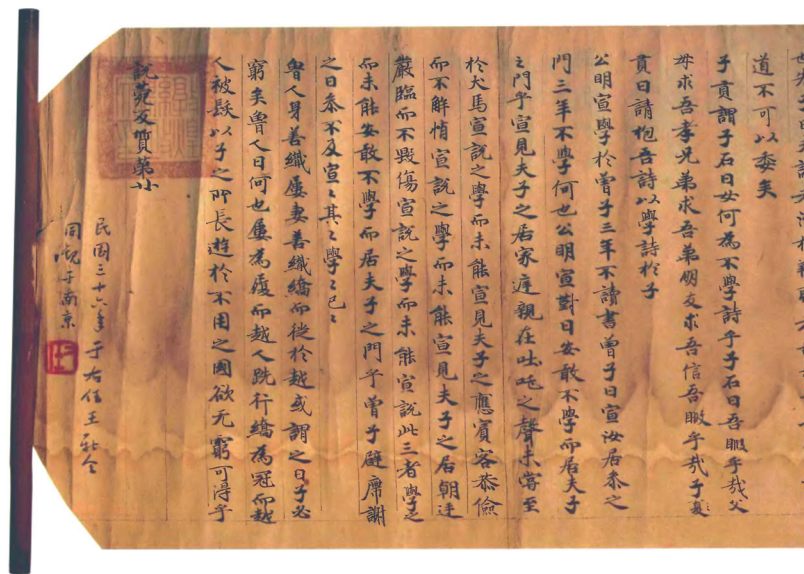 道不可以委矣
子貢謂子石曰女何為不學詩乎子石曰吾暇乎哉父
母求吾孝兄弟求吾弟朋友求吾信吾暇乎哉子
貢曰請抱吾詩以學詩於子
公明宣學於曾子三年不讀書曾子曰宣汝居叅之
門三年不學何也公明宣對曰安敢不學而居夫子
之門乎宣見夫子之居家庭親在叱吒之聲未嘗至
於犬馬宣說之學而未能宣見夫子之應賓客恭儉
而不解惰宣說之學而未能宣見夫子之居朝廷
嚴臨而不毀傷宣說之學而未能宣說此三者學之
而未能安敢不學而居夫子之門乎曾子避席謝
之曰叅不及宣〻其〻學〻已〻
魯人身善織屨妻善織縞而徙於越或謂之曰子必
窮矣魯人曰何也屨為履而越人跣行縞為冠而越
人被髮以子之所長遊於不用之國欲无窮可得乎
說苑反質第廿
民國三十六年于右任王新令
同觀于南京